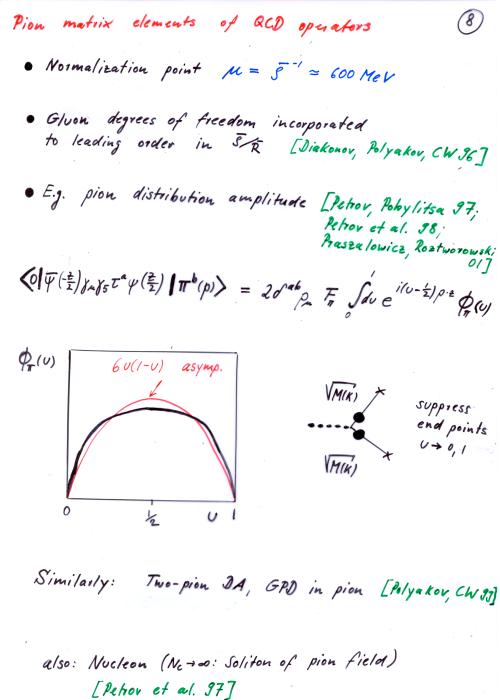 Pion matrix elements of QCD operators
8
• Normalization point μ = ρ̄⁻¹ ≈ 600 MeV
• Gluon degrees of freedom incorporated
to leading order in ρ̄/R̄ [Diakonov, Polyakov, CW 96]
• E.g. pion distribution amplitude [Petrov, Pobylitsa 97;
Petrov et al. 98;
Praszalowicz, Roztworowski
01]
⟨0|ψ̄(-z/2)γμγ5 τᵃ ψ(z/2)|πᵇ(p)⟩ = 2δᵃᵇ pμ Fπ ∫₀¹ du e^{i(u-½)p·z} ϕπ(u)
ϕπ(u)
6u(1-u) asymp.
0 1/2 u 1
√M(k)
√M(k)
suppress
end points
u → 0,1
Similarly: Two-pion DA, GPD in pion [Polyakov, CW 99]
also: Nucleon (Nc→∞: Soliton of pion field)
[Petrov et al. 97]